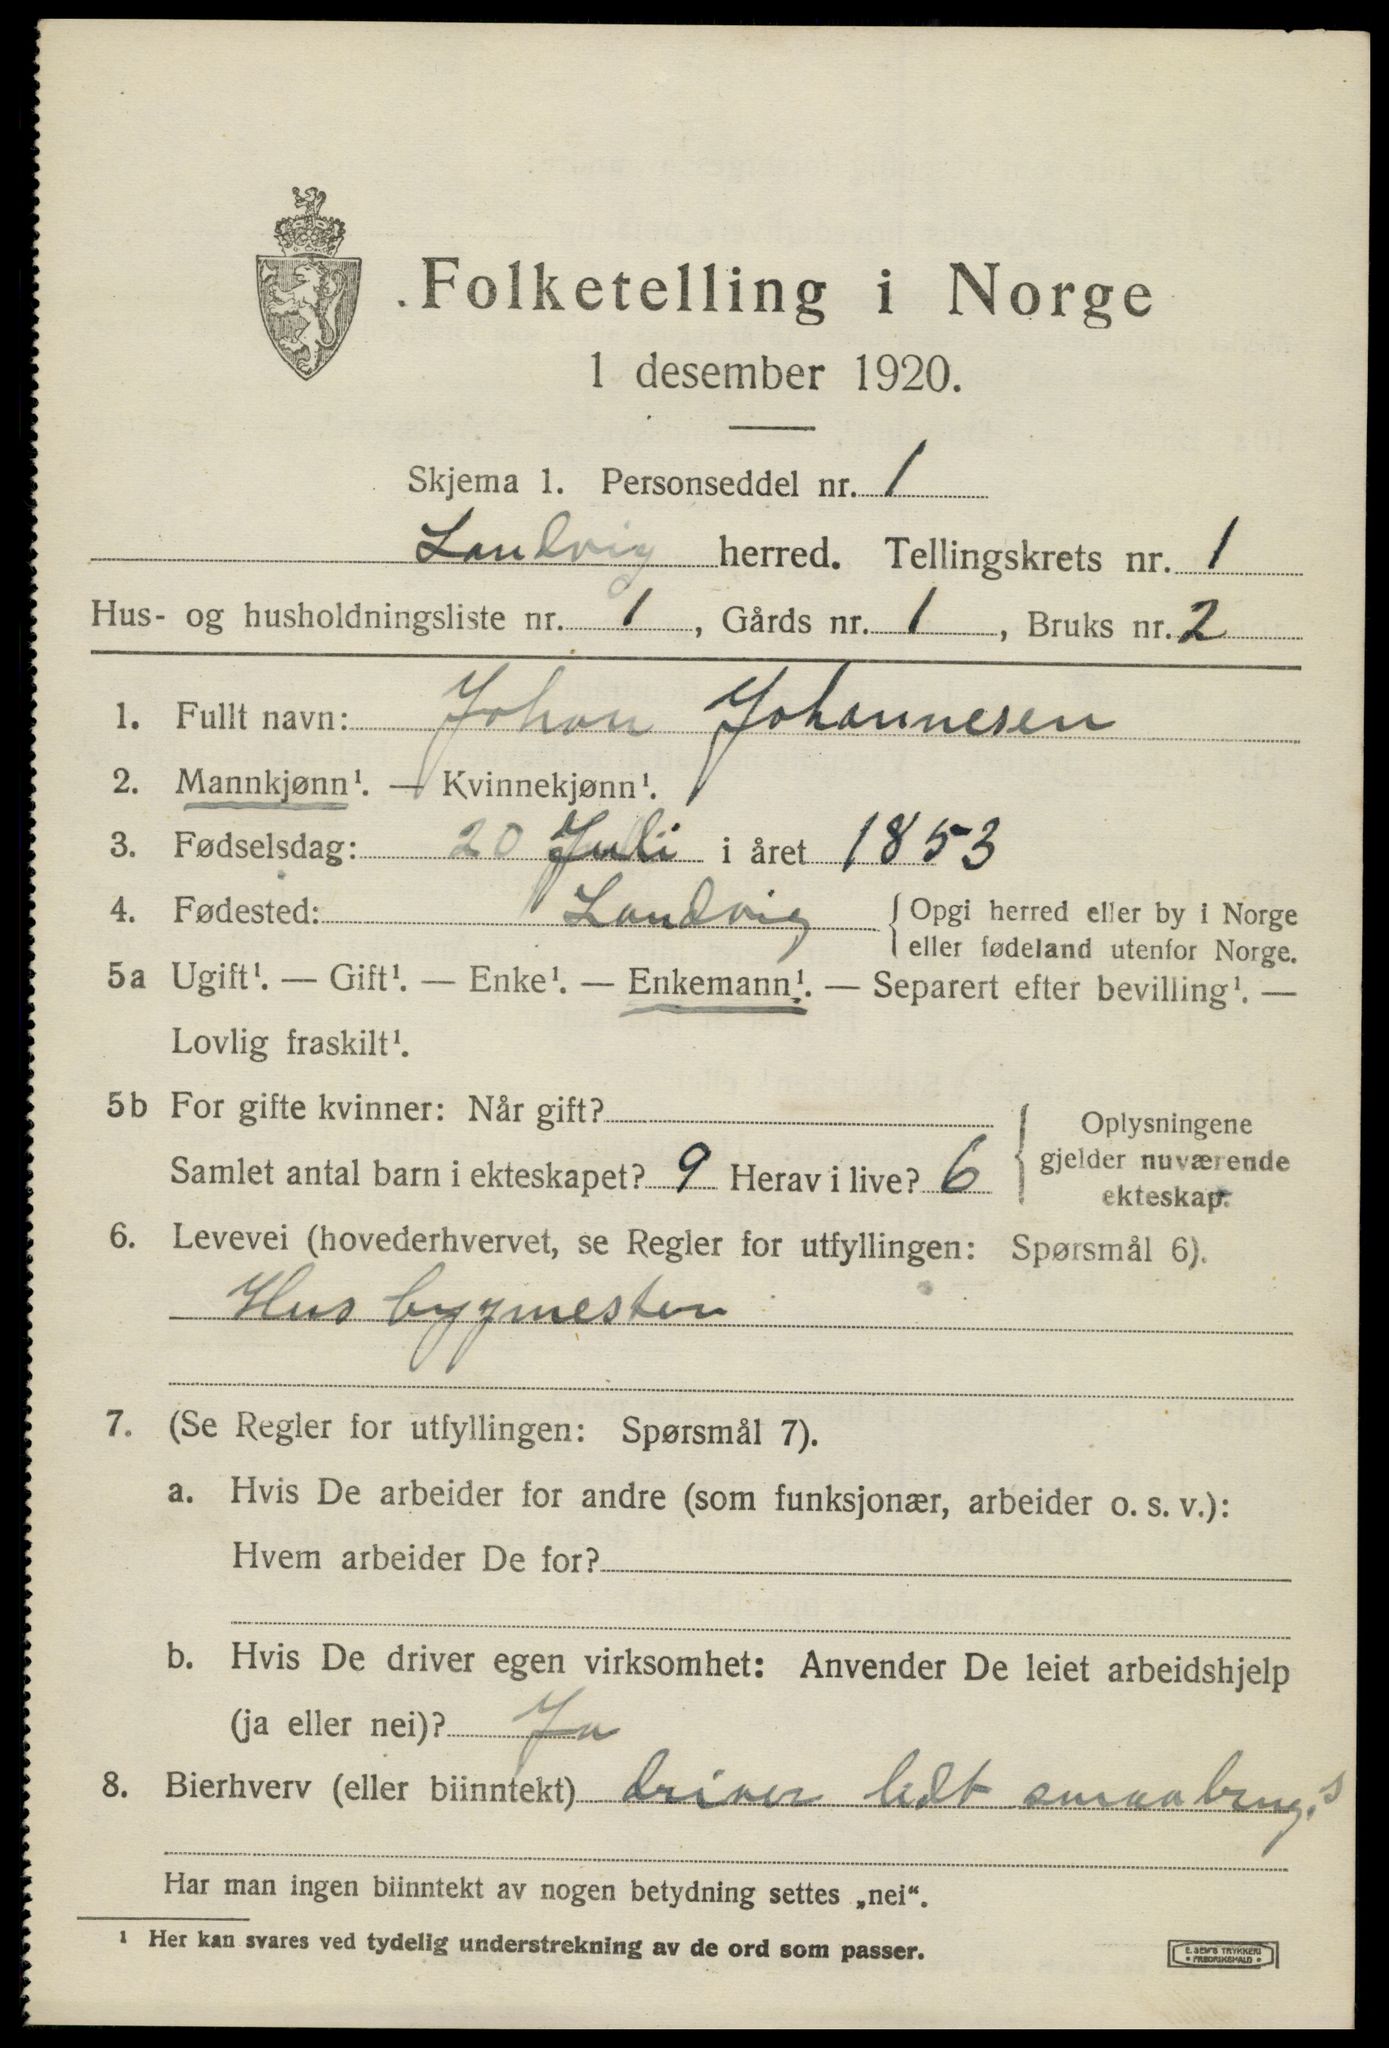 Folketelling i Norge
1 desember 1920.
Skjema 1. Personseddel nr. 1
Landvig herred. Tellingskrets nr. 1
Hus- og husholdningsliste nr. 1, Gårds nr. 1, Bruks nr. 2
1. Fullt navn: Johan Johannesen
2. Mannkjønn¹. — Kvinnekjønn¹.
3. Fødselsdag: 20 Juli i året 1853
4. Fødested: Landvig { Opgi herred eller by i Norge
eller fødeland utenfor Norge.
5a Ugift¹. — Gift¹. — Enke¹. — Enkemann¹. — Separert efter bevilling¹. —
Lovlig fraskilt¹.
5b For gifte kvinner: Når gift?
Samlet antal barn i ekteskapet? 9 Herav i live? 6
{ Oplysningene
gjelder nuværende
ekteskap.
6. Levevei (hovederhvervet, se Regler for utfyllingen: Spørsmål 6).
Hus bygmester
7. (Se Regler for utfyllingen: Spørsmål 7).
a. Hvis De arbeider for andre (som funksjonær, arbeider o. s. v.):
Hvem arbeider De for?
b. Hvis De driver egen virksomhet: Anvender De leiet arbeidshjelp
(ja eller nei)? Ja
8. Bierhverv (eller biinntekt) driver lidt smaabrug.s
Har man ingen biinntekt av nogen betydning settes „nei“.
¹ Her kan svares ved tydelig understrekning av de ord som passer.
E. SEM'S TRYKKERI
• FREDRIKSHALD •